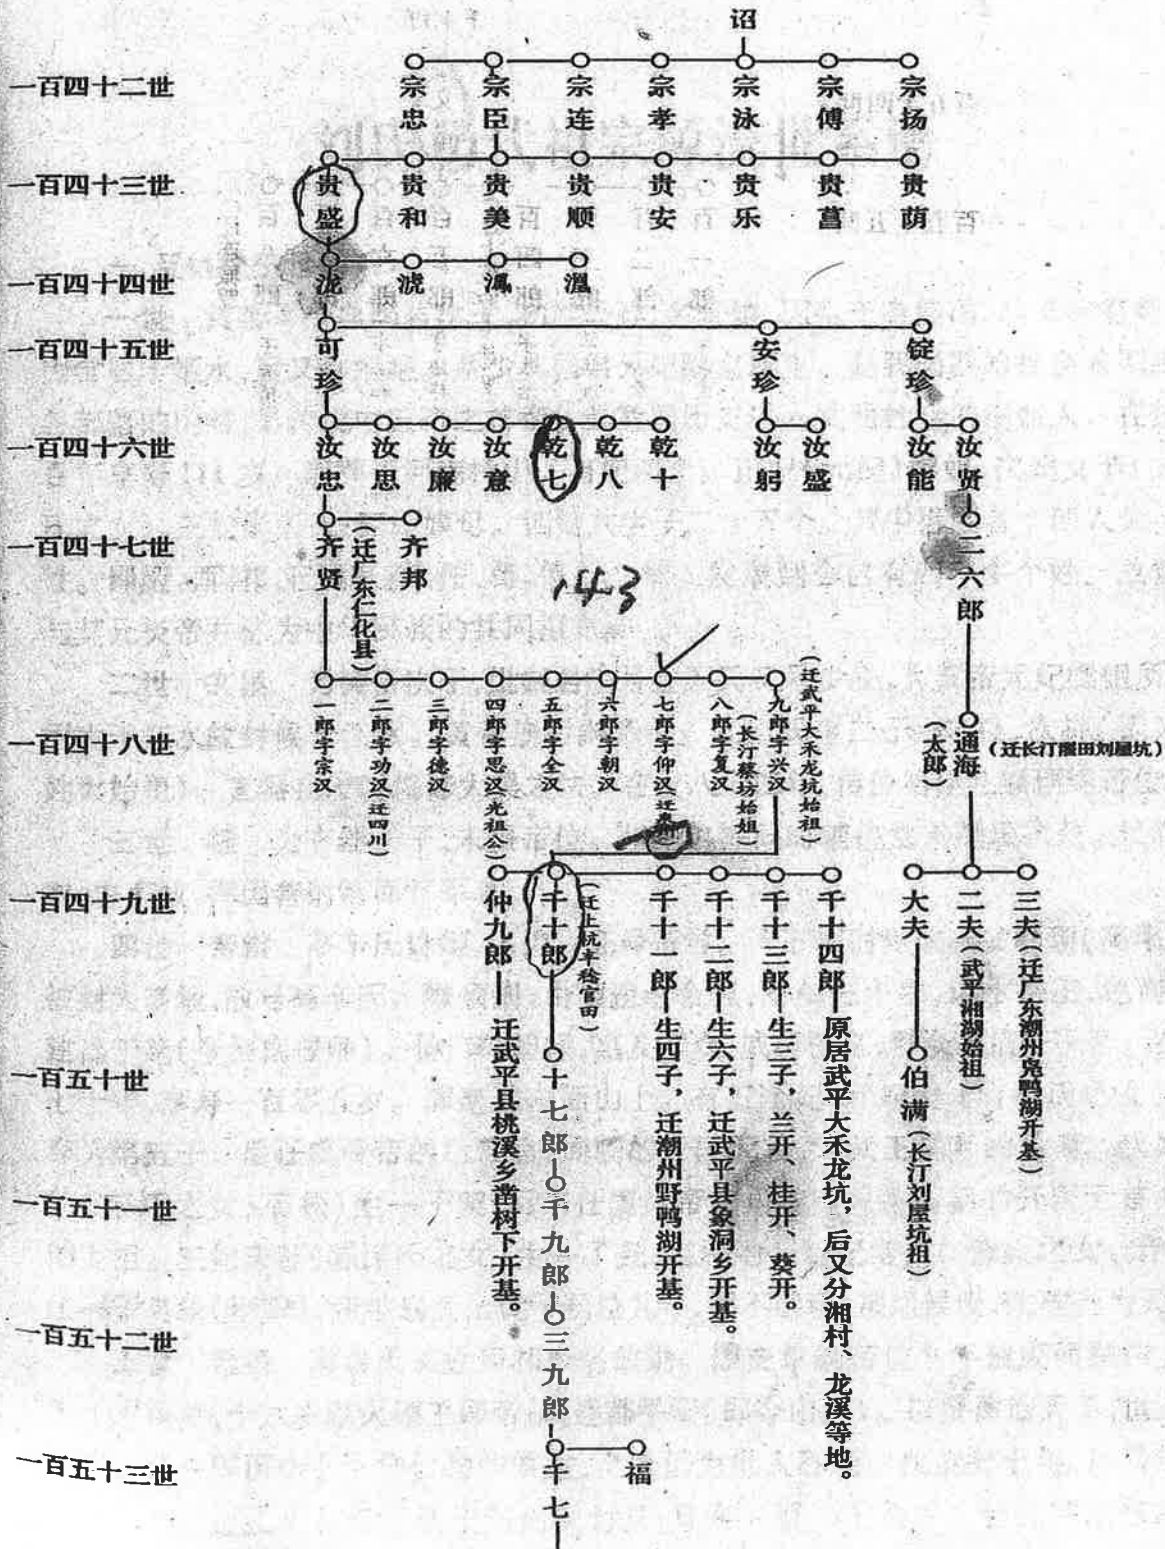 诏
一百四十二世
宗忠 宗臣 宗连 宗孝 宗泳 宗傅 宗扬
一百四十三世
贵盛 贵和 贵美 贵顺 贵安 贵乐 贵菖 贵荫
一百四十四世
泷 淲 沨 温
一百四十五世
可珍 安珍 锭珍
一百四十六世
汝忠 汝思 汝廉 汝意 乾七 乾八 乾十 汝躬 汝盛 汝能 汝贤
一百四十七世
齐贤
(迁广东仁化县)
齐邦
二六郎
143
一百四十八世
一郎字宗汉
二郎字功汉(迁四川)
三郎字德汉
四郎字思汉(光祖公)
五郎字全汉
六郎字朝汉
七郎字仰汉
八郎字复汉
(长汀蔡坊始姐)
九郎字兴汉
(迁武平大禾龙坑始祖)
通海
(太郎)
(迁长汀腰田刘屋坑)
一百四十九世
仲九郎 迁武平县桃溪乡凿树下开基。
千十郎
(迁上杭丰稔官田)
千十一郎 生四子，迁潮州野鸭湖开基。
千十二郎 生六子，迁武平县象洞乡开基。
千十三郎 生三子，兰开、桂开、葵开。
千十四郎 原居武平大禾龙坑，后又分湘村、龙溪等地。
大夫
二夫(武平湘湖始祖)
三夫(迁广东潮州凫鸭湖开基)
一百五十世
十七郎
伯满(长汀刘屋坑祖)
一百五十一世
千九郎
一百五十二世
三九郎
一百五十三世
千七 福